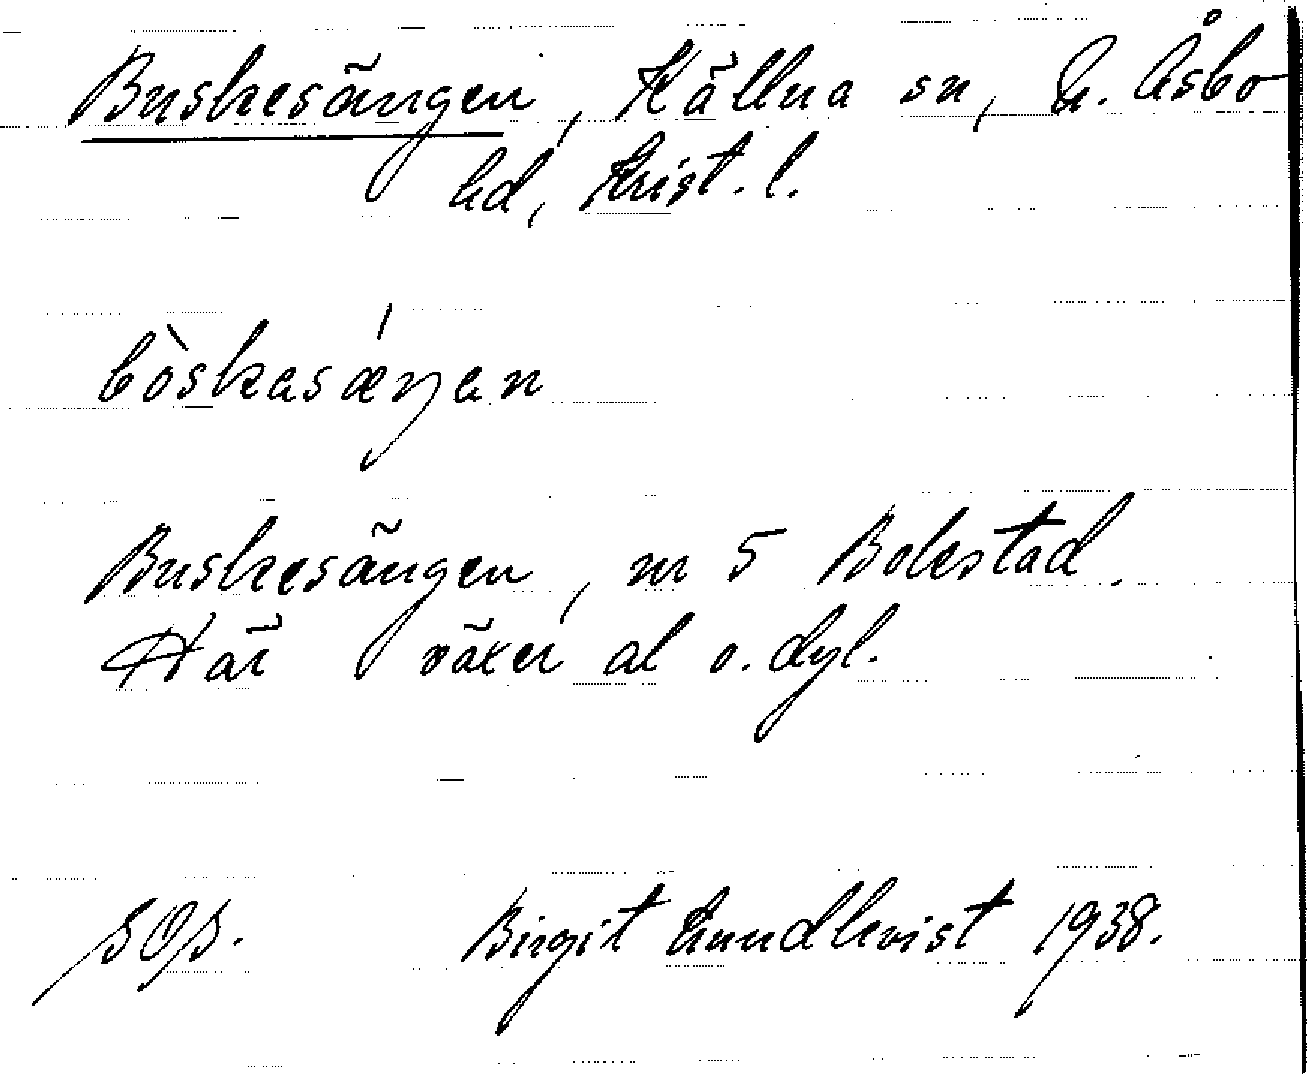 Buskesängen, Källna sn, N. Åsbo
hd, Krist. l.
bòskasǽŋan
Buskesängen, nr 5 Bolestad.
Här växer al o. dyl.
SOS. Birgit Lundkvist 1938.